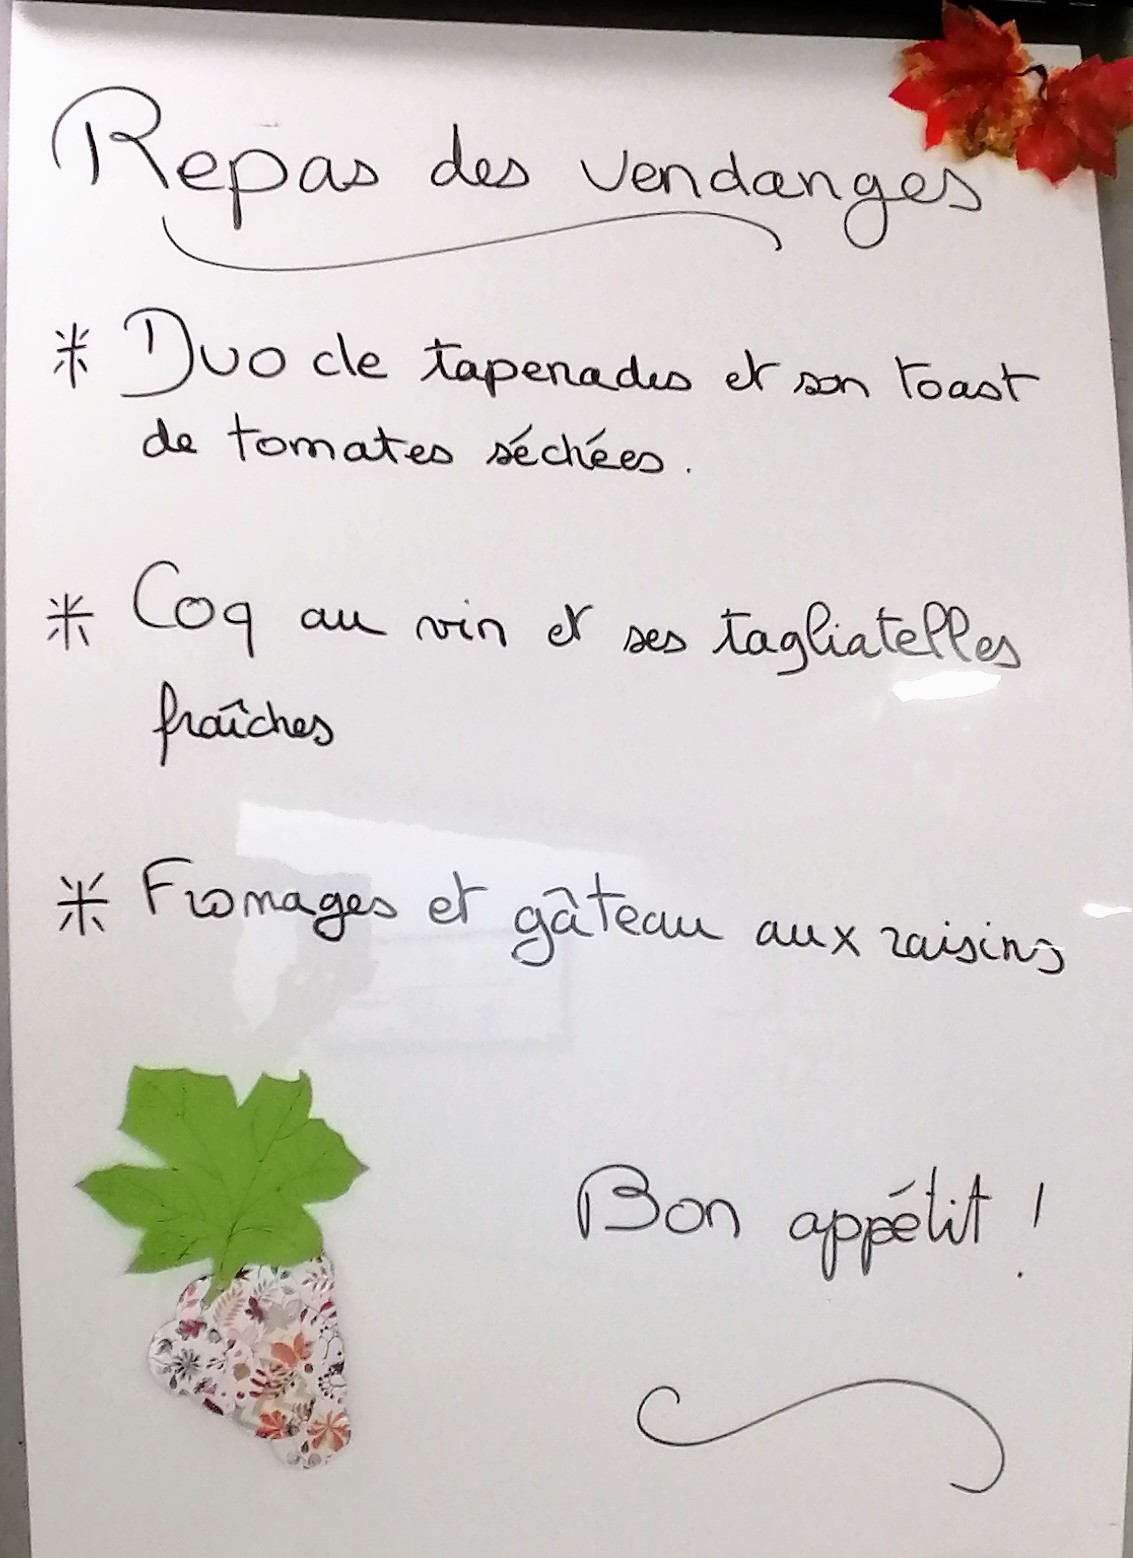 Repas des vendanges
* Duo de tapenades et son toast
de tomates séchées.
* Coq au vin et ses tagliatelles
fraîches
* Fromages et gâteau aux raisins
Bon appétit !